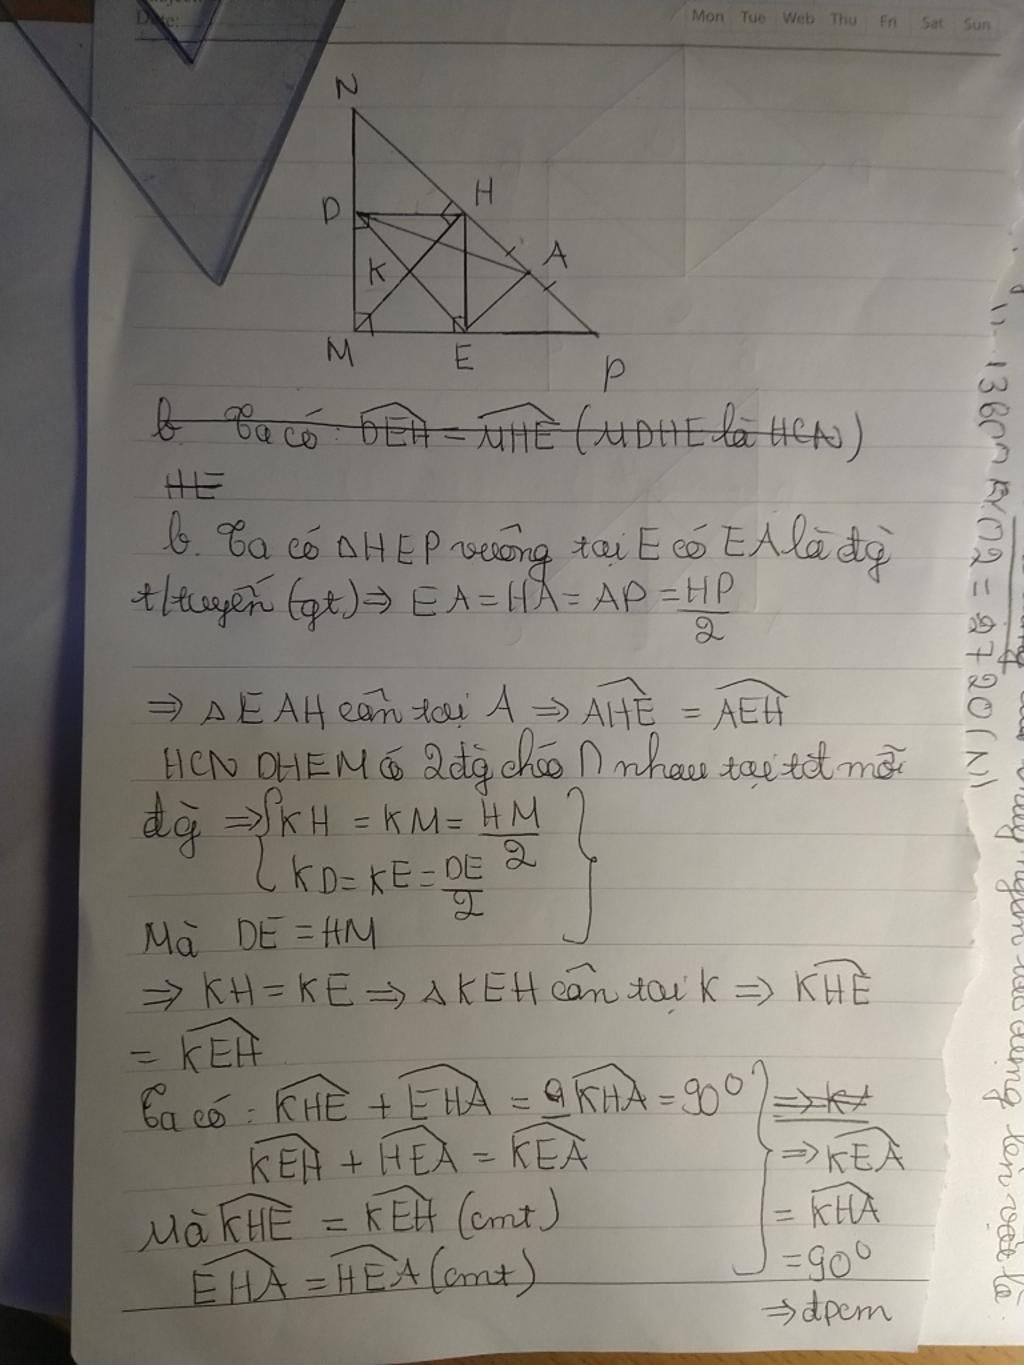 Date:
Mon Tue Web Thu Fri Sat Sun
N
D
H
A
K
M
E
P
b. Ta có: DEH = MHE (MDHE là HCN)
HE
b. Ta có ΔHEP vuông tại E có EA là đg̀
t/tuyến (gt) ⇒ EA = HA = AP = HP/2
⇒ ΔEAH cân tại A ⇒ AHE = AEH
HCN DHEM có 2 đg̀ chéo ∩ nhau tại tđ mỗi
đg̀ ⇒ { KH = KM = HM/2
KD = KE = DE/2
Mà DE = HM
⇒ KH = KE ⇒ ΔKEH cân tại K ⇒ KHE
= KEH
Ta có: KHE + EHA = KHA = 90°
KEH + HEA = KEA
⇒ KEA
Mà KHE = KEH (cmt)
= KHA
EHA = HEA (cmt)
= 90°
⇒ đpcm